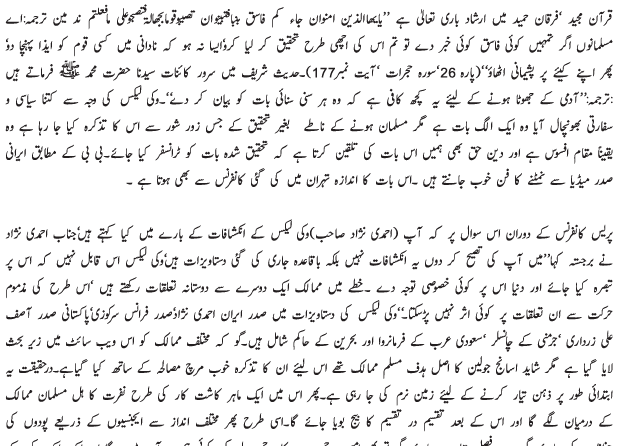 قرآن مجید ‘فرقان حمید میں ارشاد باری تعالیٰ ہے ’’یایھاالذین امنوان جاء کم فاسق بنبافتبیوان تصیبوقومابجھالۃ فتصبحوعلی مافعلتم ند مین ترجمہ:اے
مسلمانوں اگر تمہیں کوئی فاسق کوئی خبر دے تو تم اس کی اچھی طرح تحقیق کر لیا کرو‘ایسا نہ ہو کہ نادانی میں کسی قوم کو ایذا پہنچا دو‘
پھر اپنے کیئے پر پشیمانی اٹھاؤ‘‘(پارہ 26‘سورہ حجرات ‘آیت نمبر177)۔حدیث شریف میں سرور کائنات سیدنا حضرت محمد ﷺ فرماتے ہیں
:ترجمہ:’’آدمی کے جھوٹا ہونے کے لیئے یہ کچھ کافی ہے کہ وہ ہر سنی سنائی بات کو بیان کر دے‘‘۔وکی لیکس کی وجہ سے کتنا سیاسی و
سفارتی بھونچال آیا وہ ایک الگ بات ہے مگر مسلمان ہونے کے ناطے بغیر تحقیق کے جس زور شور سے اس کا تذکرہ کیا جا رہا ہے وہ
یقیناً مقام افسوس ہے اور دین حق بھی ہمیں اس بات کی تلقین کرتا ہے کہ تحقیق شدہ بات کو ٹرانسفر کیا جائے۔بی بی کے مطابق ایرانی
صدر میڈیا سے نمٹنے کا فن خوب جانتے ہیں ۔اس بات کا اندازہ تہران میں کی گئی کانفرنس سے بھی ہوتا ہے ۔
پریس کانفرنس کے دوران اس سوال پر کہ آپ (احمدی نژاد صاحب)وکی لیکس کے انکشافات کے بارے میں کیا کہتے ہیں‘جناب احمدی نژاد
نے برجستہ کہا’’میں آپ کی تصیح کر دوں یہ انکشافات نہیں بلکہ باقاعدہ جاری کی گئی دستاویزات ہیں‘وکی لیکس اس قابل نہیں کہ اس پر
تبصرہ کیا جائے اور دنیا اس پر کوئی خصوصی توجہ دے ۔خطے میں ممالک ایک دوسرے سے دوستانہ تعلقات رکھتے ہیں ‘اس طرح کی مذموم
حرکت سے ان تعلقات پر کوئی اثر نہیں پڑسکتا‘‘۔وکی لیکس کی دستاویزات میں صدر ایران احمدی نژاد‘صدر فرانس سرکوزی‘پاکستانی صدر آصف
علی زرداری ‘جرمنی کے چانسلر ‘سعودی عرب کے فرمانروا اور بحرین کے حاکم شامل ہیں۔گو کہ مختلف ممالک کو اس ویب سائٹ میں زیر بحث
لایا گیا ہے مگر شاید اسانج جولین کا اصل ہدف مسلم ممالک تھے اس لیئے ان کا تذکرہ خوب مرچ مصالحہ کے ساتھ کیا گیاہے۔درحقیقت یہ
ابتدائی طور پر ذہن تیار کرنے کے لیئے زمین نرم کی جا رہی ہے۔پھر اس میں ایک ماہر کاشت کار کی طرح نفرت کا ہل مسلمان ممالک
کے درمیان لگے گا اور اس کے بعد تقسیم در تقسیم کا بیج بویا جائے گا۔اسی طرح پھر مختلف انداز سے ایجنسیوں کے ذریعے پودوں کی